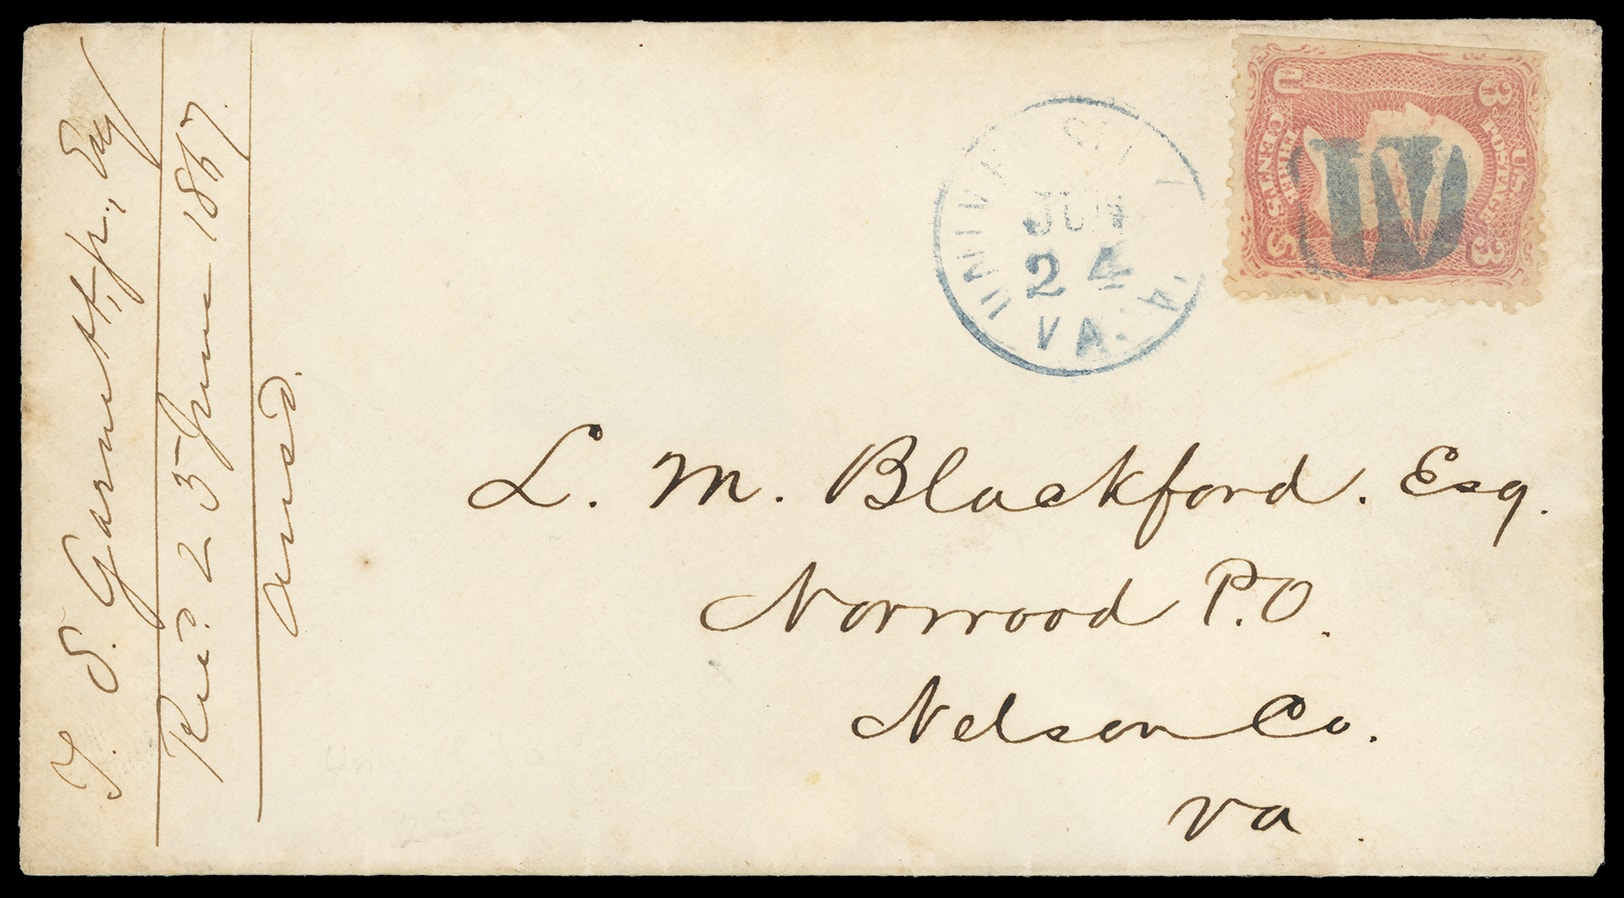 T. S. Garnett, jr., Esq
Rec'd. 23 June 1867.
Ans'd.
UNIVERSITY VA.
JUN
24
VA.
U 3
U.S. POSTAGE
THREE CENTS
S 3
L. M. Blackford. Esq.
Norwood P.O.
Nelson Co.
Va.